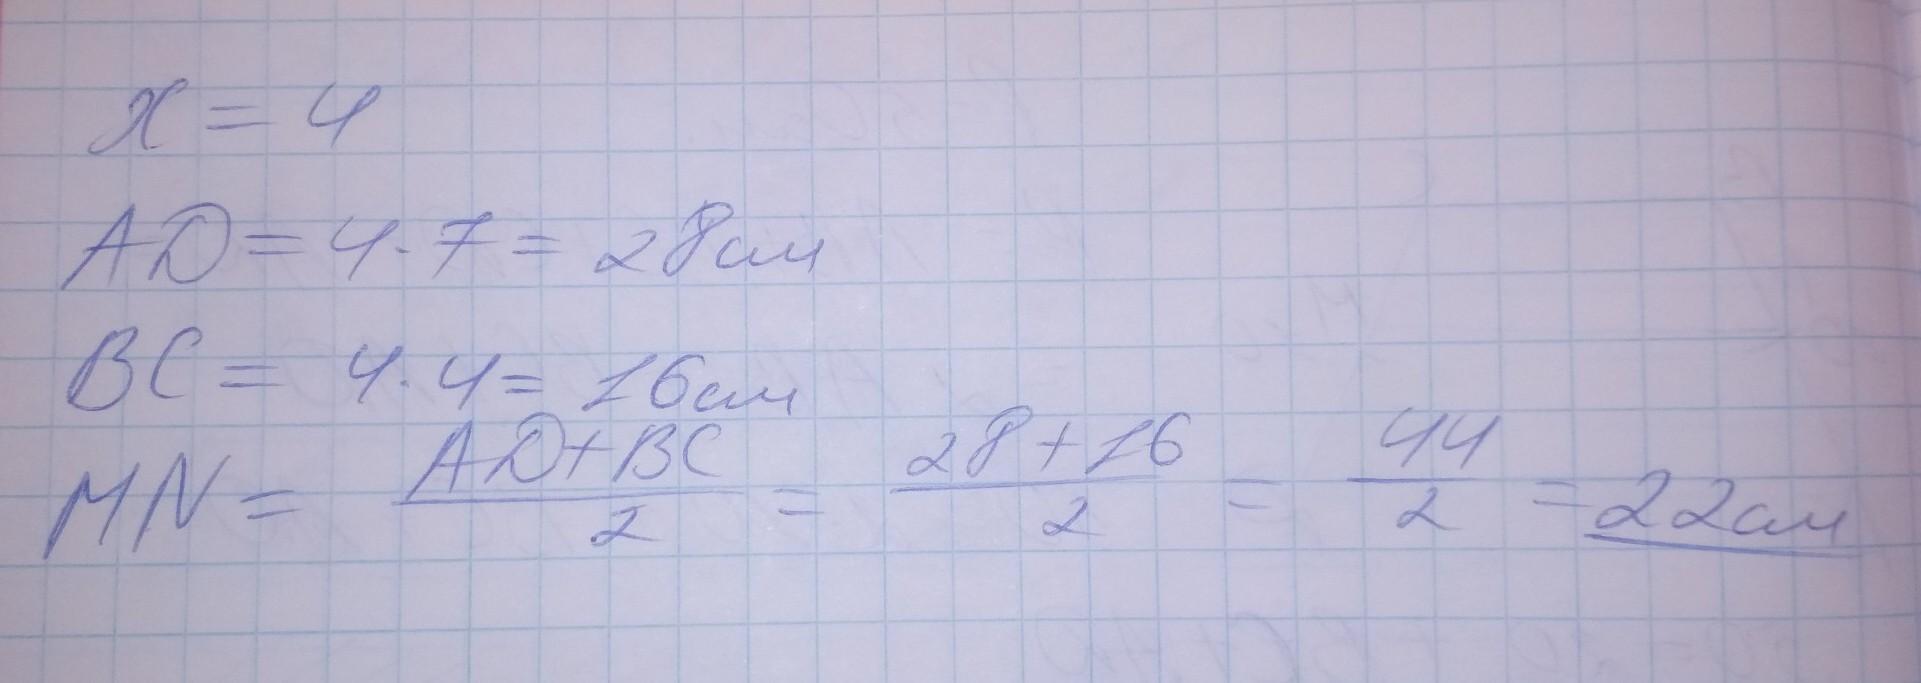 x = 4
AD = 4 · 7 = 28см
BC = 4 · 4 = 16см
MN = \frac{AD+BC}{2} = \frac{28+16}{2} = \frac{44}{2} = 22см